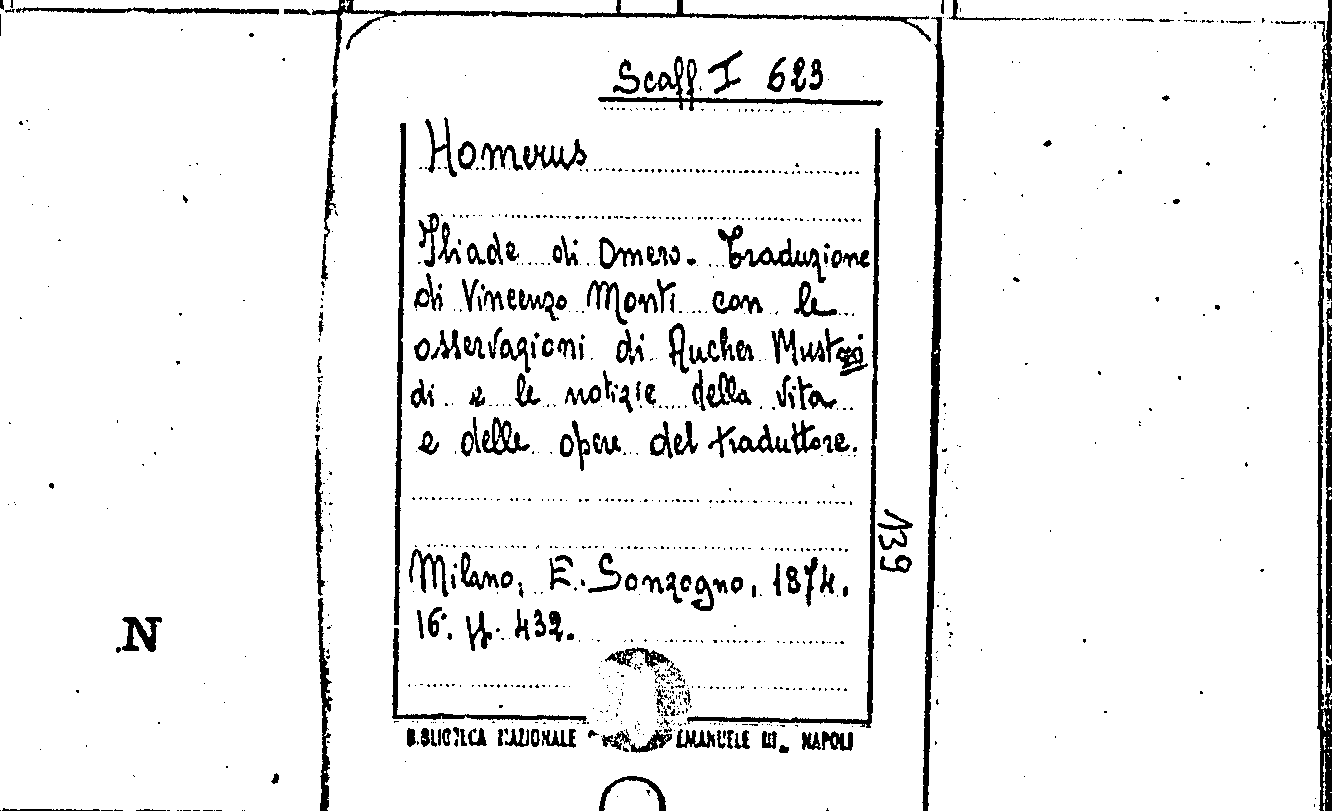 Scaff. I 623
Homerus
Iliade di Omero. Traduzione
di Vincenzo Monti con le
osservazioni di Aucher Mustoxi
di e le notizie della vita
e delle opere del traduttore.
139
Milano, E. Sonzogno, 1874.
16°. pp. 432.
N
BIBLIOTECA NAZIONALE EMANUELE III_ NAPOLI